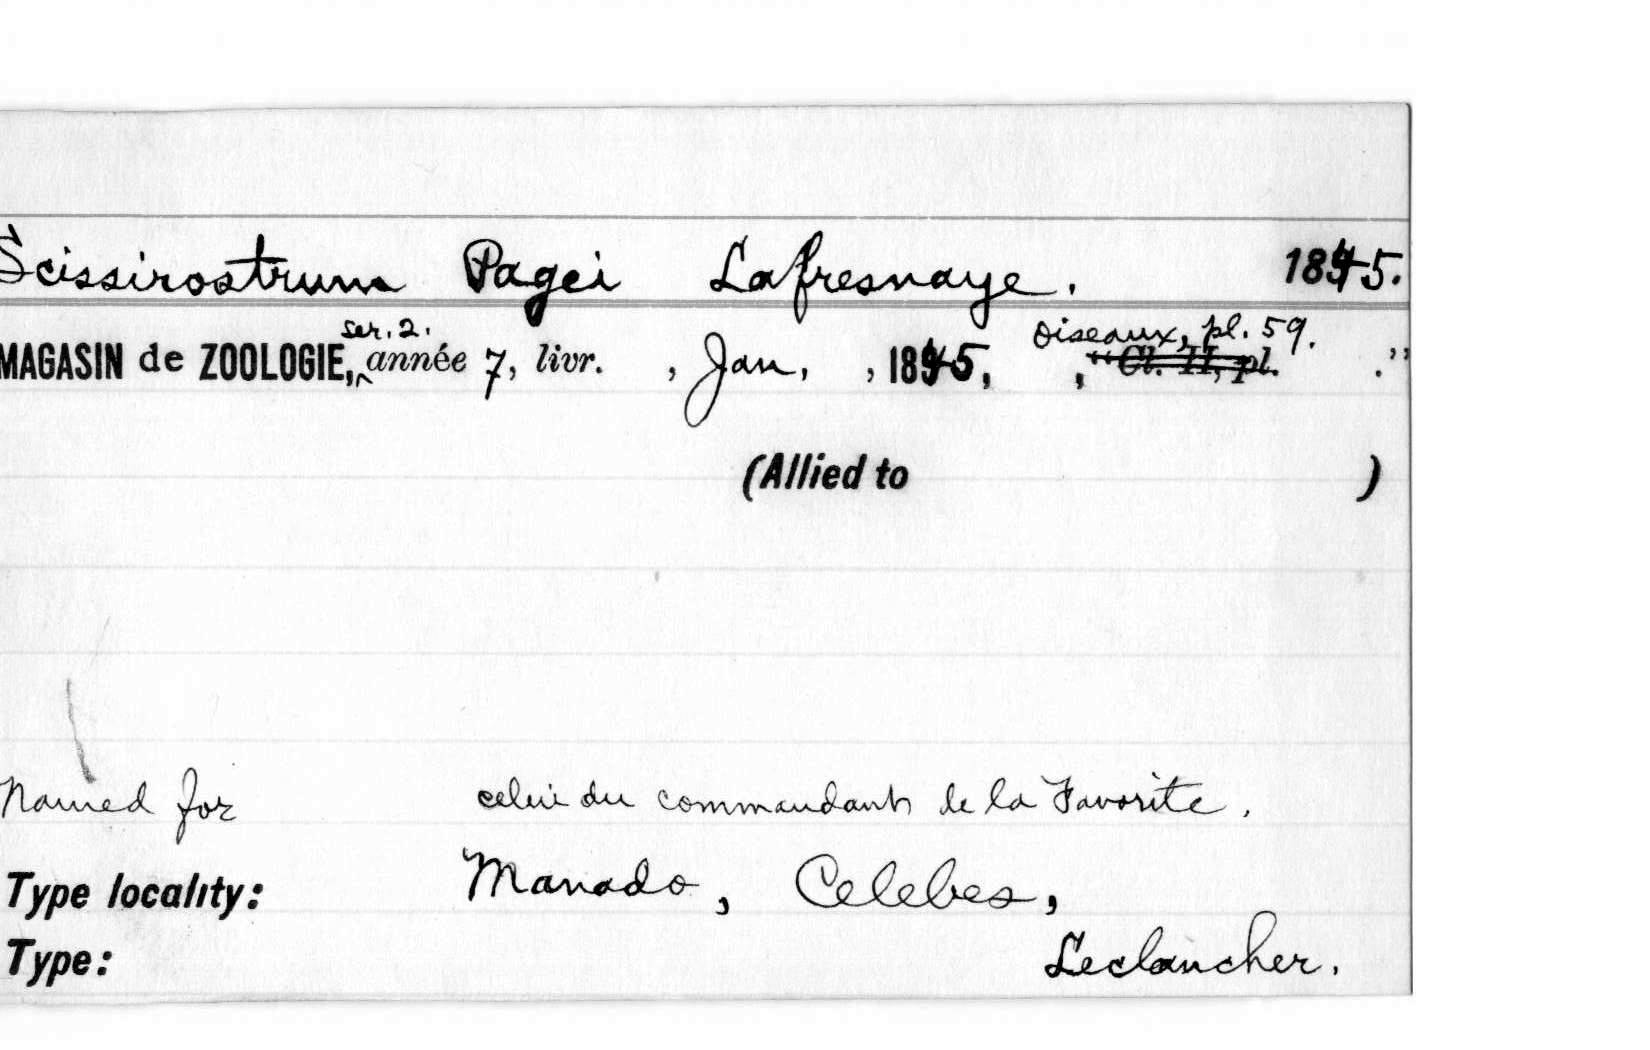 Scissirostrum Pagei Lafresnaye. 1845.
ser. 2. oiseaux, pl. 59.
MAGASIN de ZOOLOGIE, année 7, livr. , Jan, , 1845, , "Cl. II, pl. ."
(Allied to )
Named for celui du commandant de la Favorite.
Type locality: Manado, Celebes,
Type: Leclancher.